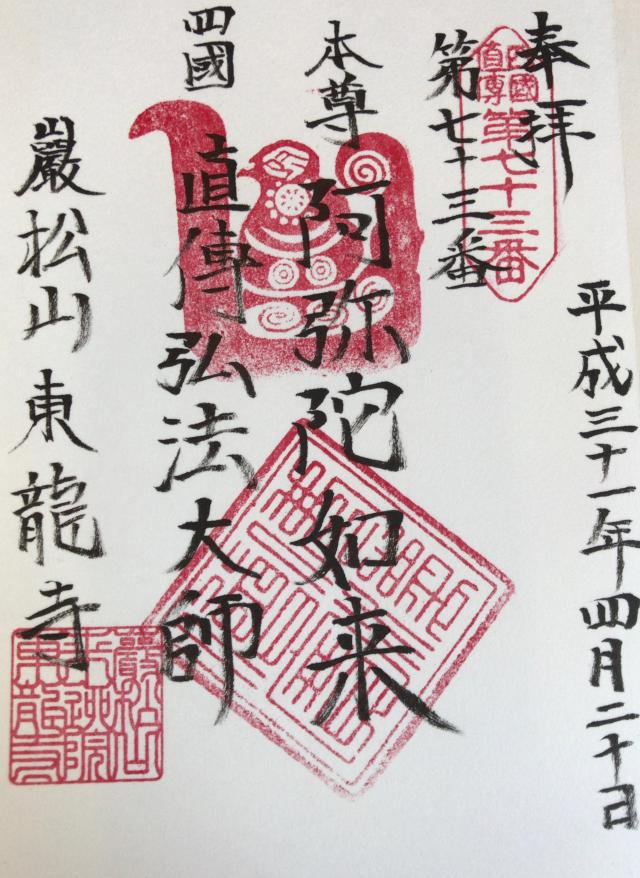 奉拝
四國
直傳
第七十三番
平成三十一年四月二十日
第七十三番
本尊
阿弥陀如来
四國
直傳弘法大師
巖松山東龍寺
巖松山
東龍寺